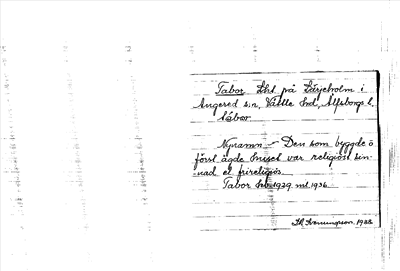 Tabor Lht på Lärjeholm i
Angered sn, Vättle hd, Älfsborgs l,
tábɔr
Nynamn – Den som byggde o
först ägde huset var religiöst sin-
nad el frireligiös.
Tabor 1929. mtl 1936.
1938